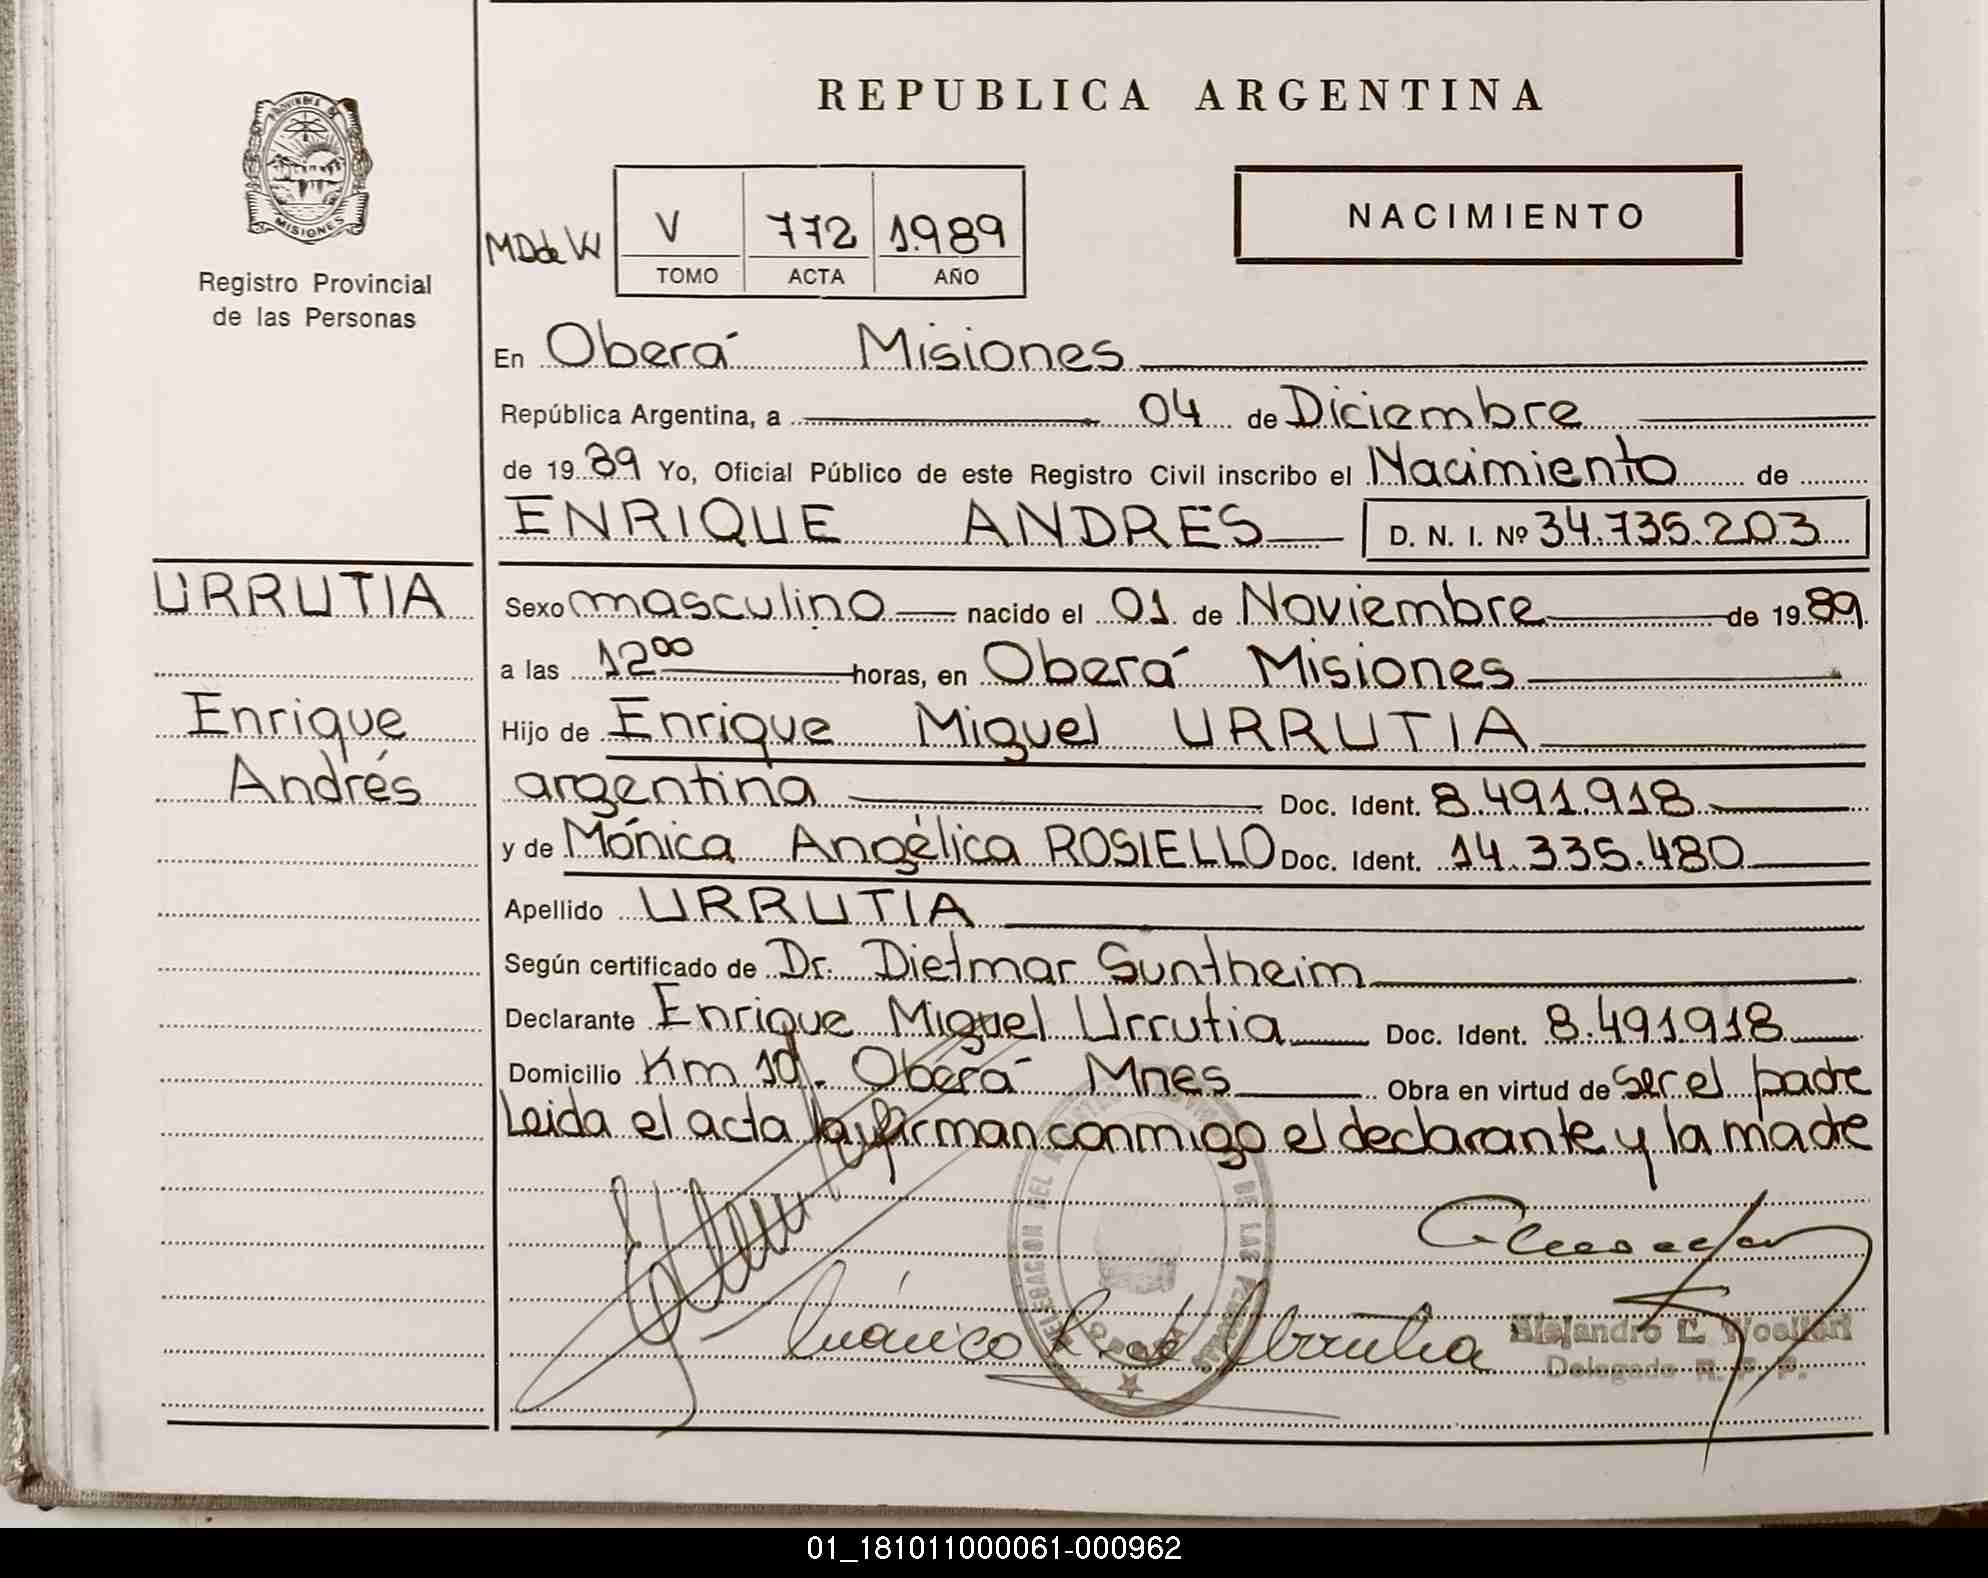 REPUBLICA ARGENTINA
PROVINCIA DE
MISIONES
Registro Provincial
de las Personas
MD de W
V 772 1989
TOMO ACTA AÑO
NACIMIENTO
En Oberá Misiones
República Argentina, a 04 de Diciembre
de 1989 Yo, Oficial Público de este Registro Civil inscribo el Nacimiento de
ENRIQUE ANDRES D. N. I. Nº 34.735.203
URRUTIA
Enrique
Andrés
Sexo masculino nacido el 01 de Noviembre de 1989.
a las 12⁰⁰ horas, en Oberá Misiones
Hijo de Enrique Miguel URRUTIA
argentina Doc. Ident. 8.491.918
y de Mónica Angélica ROSIELLO Doc. Ident. 14.335.480
Apellido URRUTIA
Según certificado de Dr. Dietmar Suntheim
Declarante Enrique Miguel Urrutia Doc. Ident. 8.491918
Domicilio Km 10. Oberá Mnes Obra en virtud de ser el padre
Leida el acta la firman conmigo el declarante y la madre
DE LAS
Mónica R. de Urrutia
Alejandro
Delegado R. P. P.
01_181011000061-000962